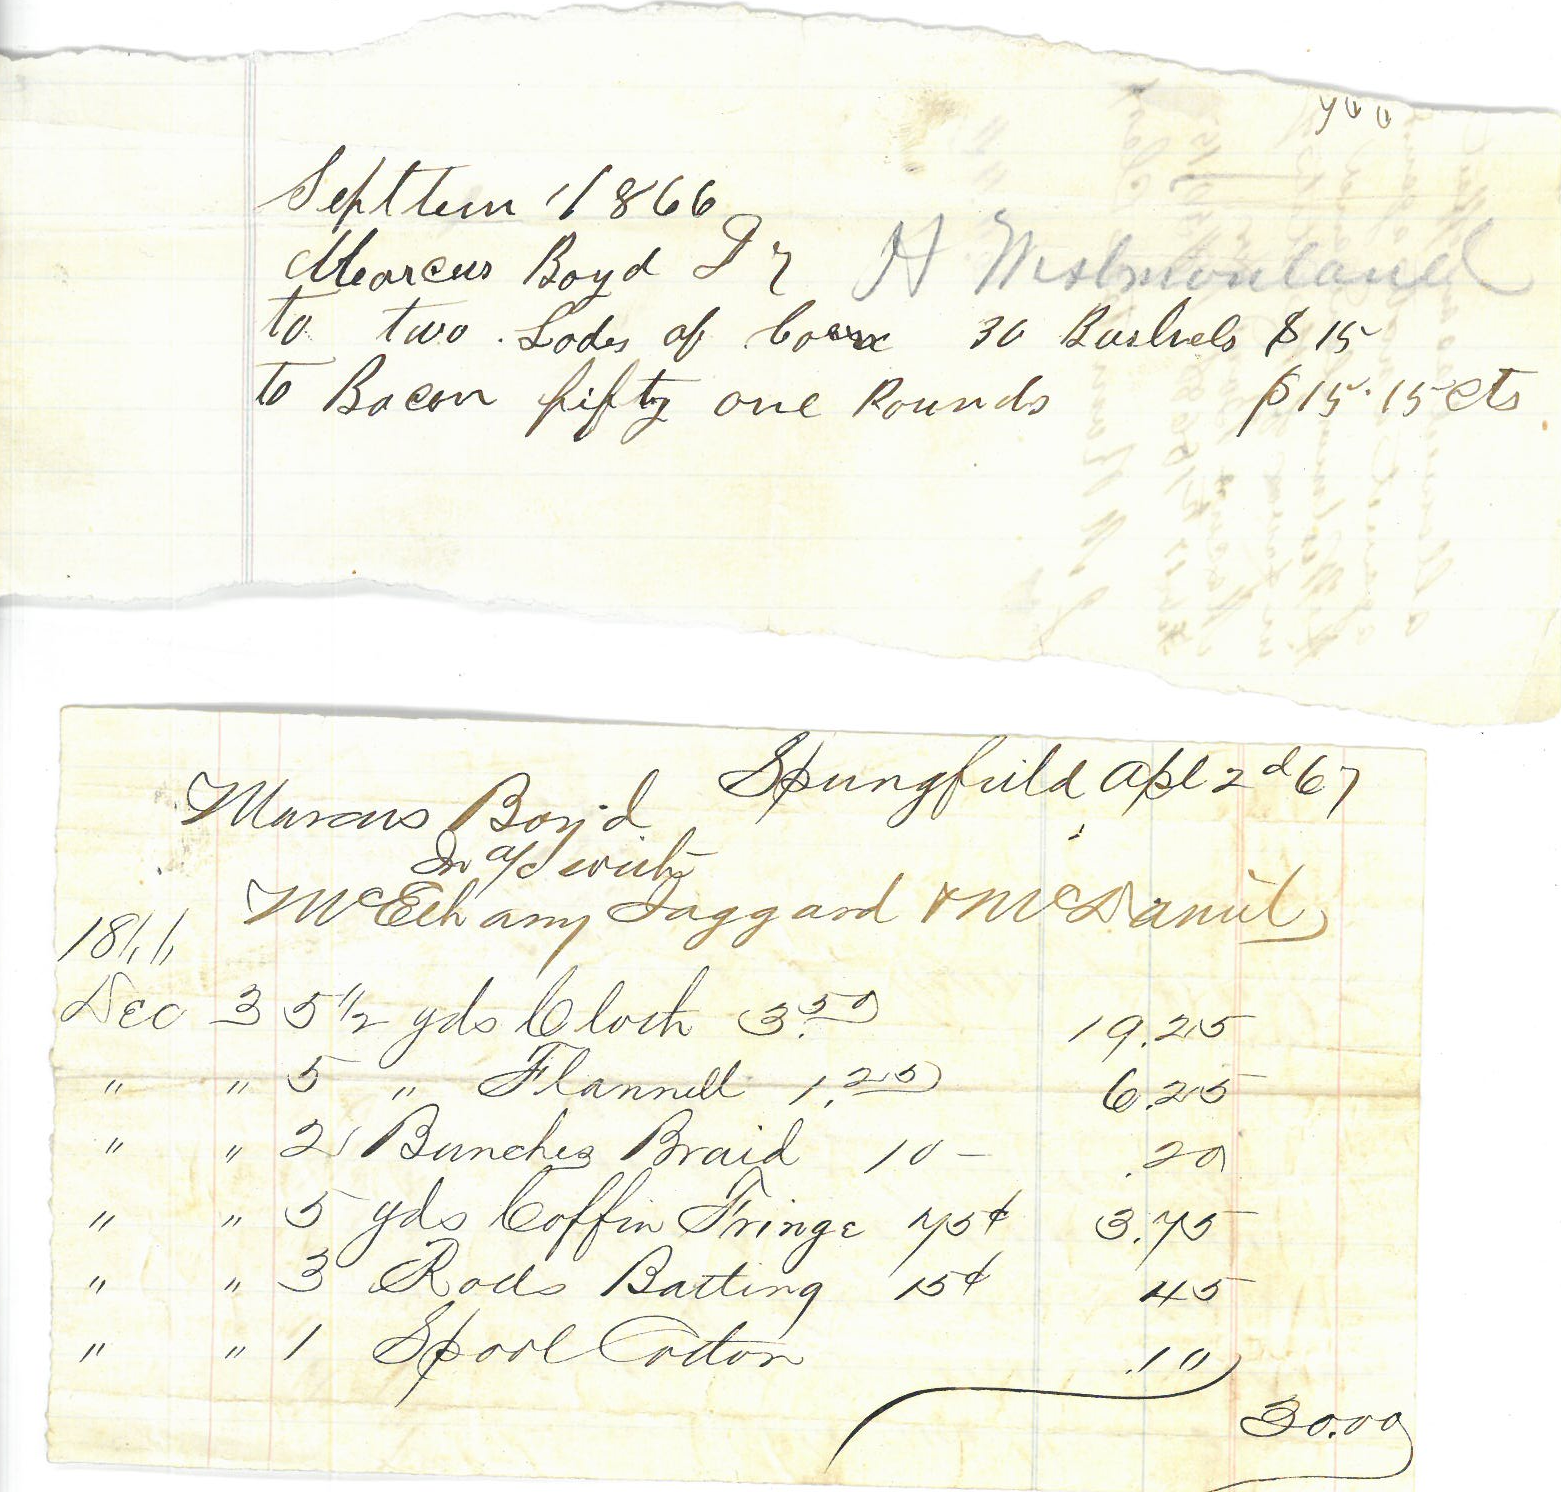 Septtem 1866
Marcus Boyd Dr H Westmoreland
to two Lodes of Corn 30 Bushels $ 15
to Bacon fifty one Pounds $15.15 cts
Springfield Apl 2d 67
Marcus Boyd
In a/c with
McElhany Jaggard & McDaniel
1866
Dec 3 5 1/2 yds Cloth 3.50 19.25
" " 5 " Flannell 1.25 6.25
" " 2 Bunches Braid 10 - .20
" " 5 yds Coffin Fringe 75¢ 3.75
" " 3 Rolls Batting 15¢ 45
" " 1 Spool Cotton .10
30.00